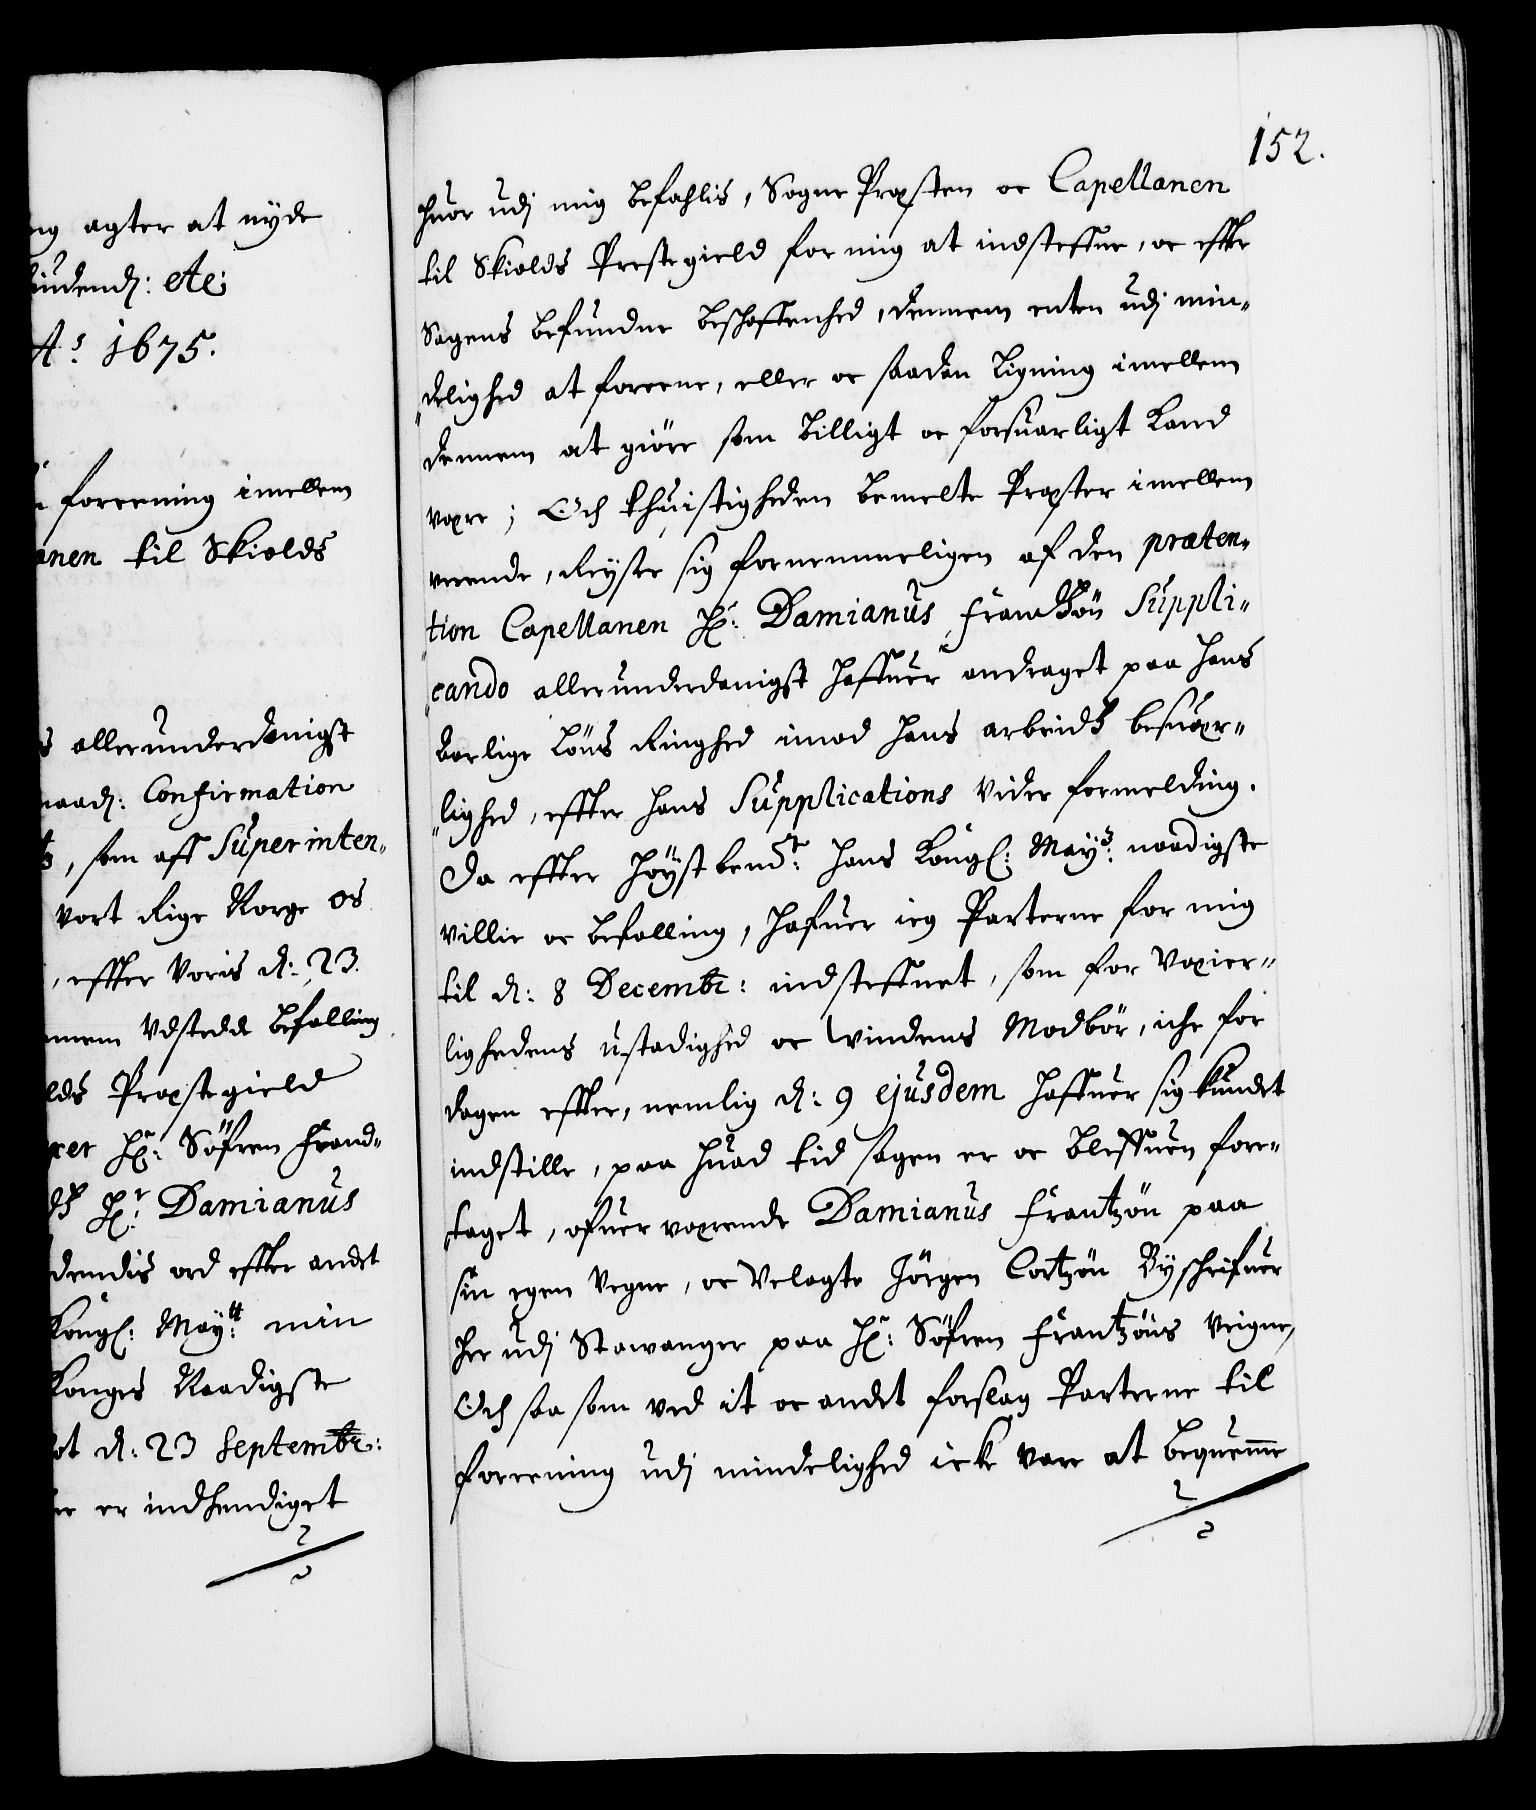 ng agter at nyde
biudend: etc:
Aº 1675.
foreening imellem
anen til Skiolds
s allerunderdanigst
naad: Confirmation
, som aff Superinten„
vort Rige Norge os
, effter Voris d: 23.
nnem Vdstedde befalling
lds Præstegield
Hr: Söfren Frand„
Hr: Damianus
dendis ord effter andet
Kongl: Maytt: min
Konges Naadigste
ot d: 23 Septembr:
er indhendiget
152.
huor udj mig befahlis, Sogne Præsten oc Capellanen
til Skiolds Prestegield for mig at indsteffne, oc effter
Sagens befundne beschaffenhed, dennem enten udj min„
„delighed at foreene, eller oc saadan Ligning imellem
dennem at giöre som billigt oc forsuarligt kand
være; Och thuistigheden bemelte Præster imellem
veerende, Reyste sig fornemmeligen af den præten„
„tion Capellanen Hr: Damianus Frandtzön Suppli„
„cando allerunderdanigst haffuer andraget paa hans
aarlige Löns Ringhed imod hans arbeidtz besuær„
„lighed, effter hans Supplications vider formelding.
Da effter höyst bemte: hans Kongl: Mays: naadigste
villie oc befalling, hafuer ieg Parterne for mig
til d: 8 Decembr: indsteffnet, som for Væier„
lighedens ustadighed oc Windens Modbör, iche for
dagen effter, nemlig d: 9 ejusdem haffuer sig kundet
indstille, paa huad tid sagen er oc bleffuen fore„
taget, ofuerværende Damianus Frantzön paa
sin egen Vegne, oc Velagte Jörgen Cortzön Byschrifuer
her udj Stawanger paa Hr: Söfren Frantzöns Veigne,
Och saa som ved it oc andet forslag Parterne til
foreening udj mindelighed icke vare at beqvemme